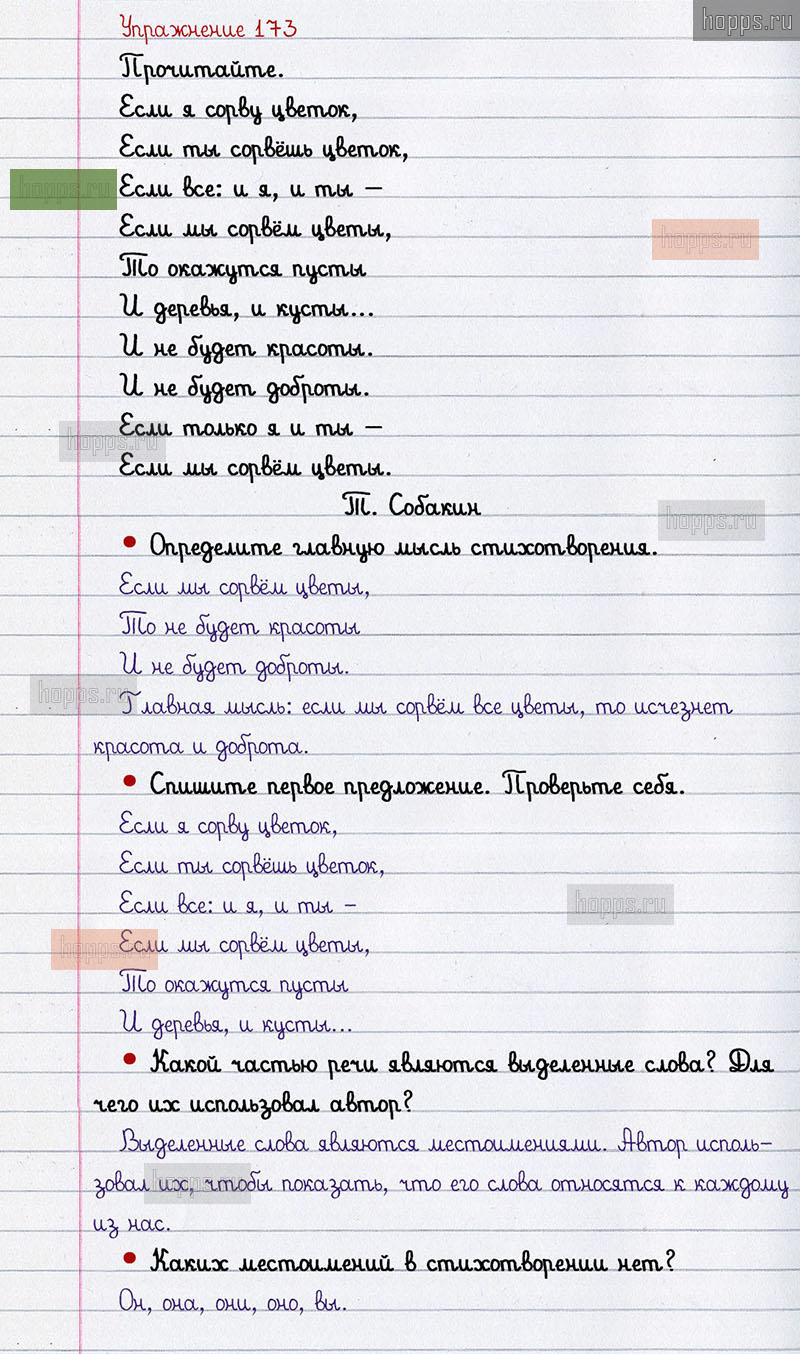 hopps.ru
Упражнение 173
Прочитайте.
Если я сорву цветок,
Если ты сорвёшь цветок,
hopps.ru
Если все: и я, и ты –
Если мы сорвём цветы,
hopps.ru
То окажутся пусты
И деревья, и кусты...
И не будет красоты.
И не будет доброты.
Если только я и ты –
hopps.ru
Если мы сорвём цветы.
Т. Собакин
hopps.ru
• Определите главную мысль стихотворения.
Если мы сорвём цветы,
То не будет красоты
И не будет доброты.
hopps.ru
Главная мысль: если мы сорвём все цветы, то исчезнет
красота и доброта.
• Спишите первое предложение. Проверьте себя.
Если я сорву цветок,
Если ты сорвёшь цветок,
Если все: и я, и ты –
hopps.ru
Если мы сорвём цветы,
hopps.ru
То окажутся пусты
И деревья, и кусты...
• Какой частью речи являются выделенные слова? Для
чего их использовал автор?
Выделенные слова являются местоимениями. Автор исполь-
зовал их, чтобы показать, что его слова относятся к каждому
hopps.ru
из нас.
• Каких местоимений в стихотворении нет?
Он, она, они, оно, вы.